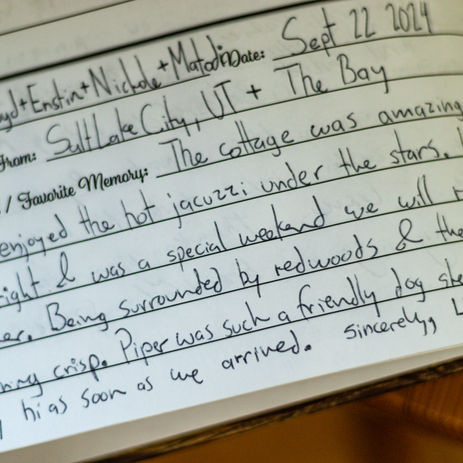 yd+Enstin+Nichole+Matodi Date: Sept 22 2024
From: Salt Lake City, UT + The Bay
/ Favorite Memory: The cottage was amazing
enjoyed the hot jacuzzi under the stars.
right & was a special weekend we will r
er. Being surrounded by redwoods & the
ning crisp. Piper was such a friendly dog she
hi as soon as we arrived. Sincerely,